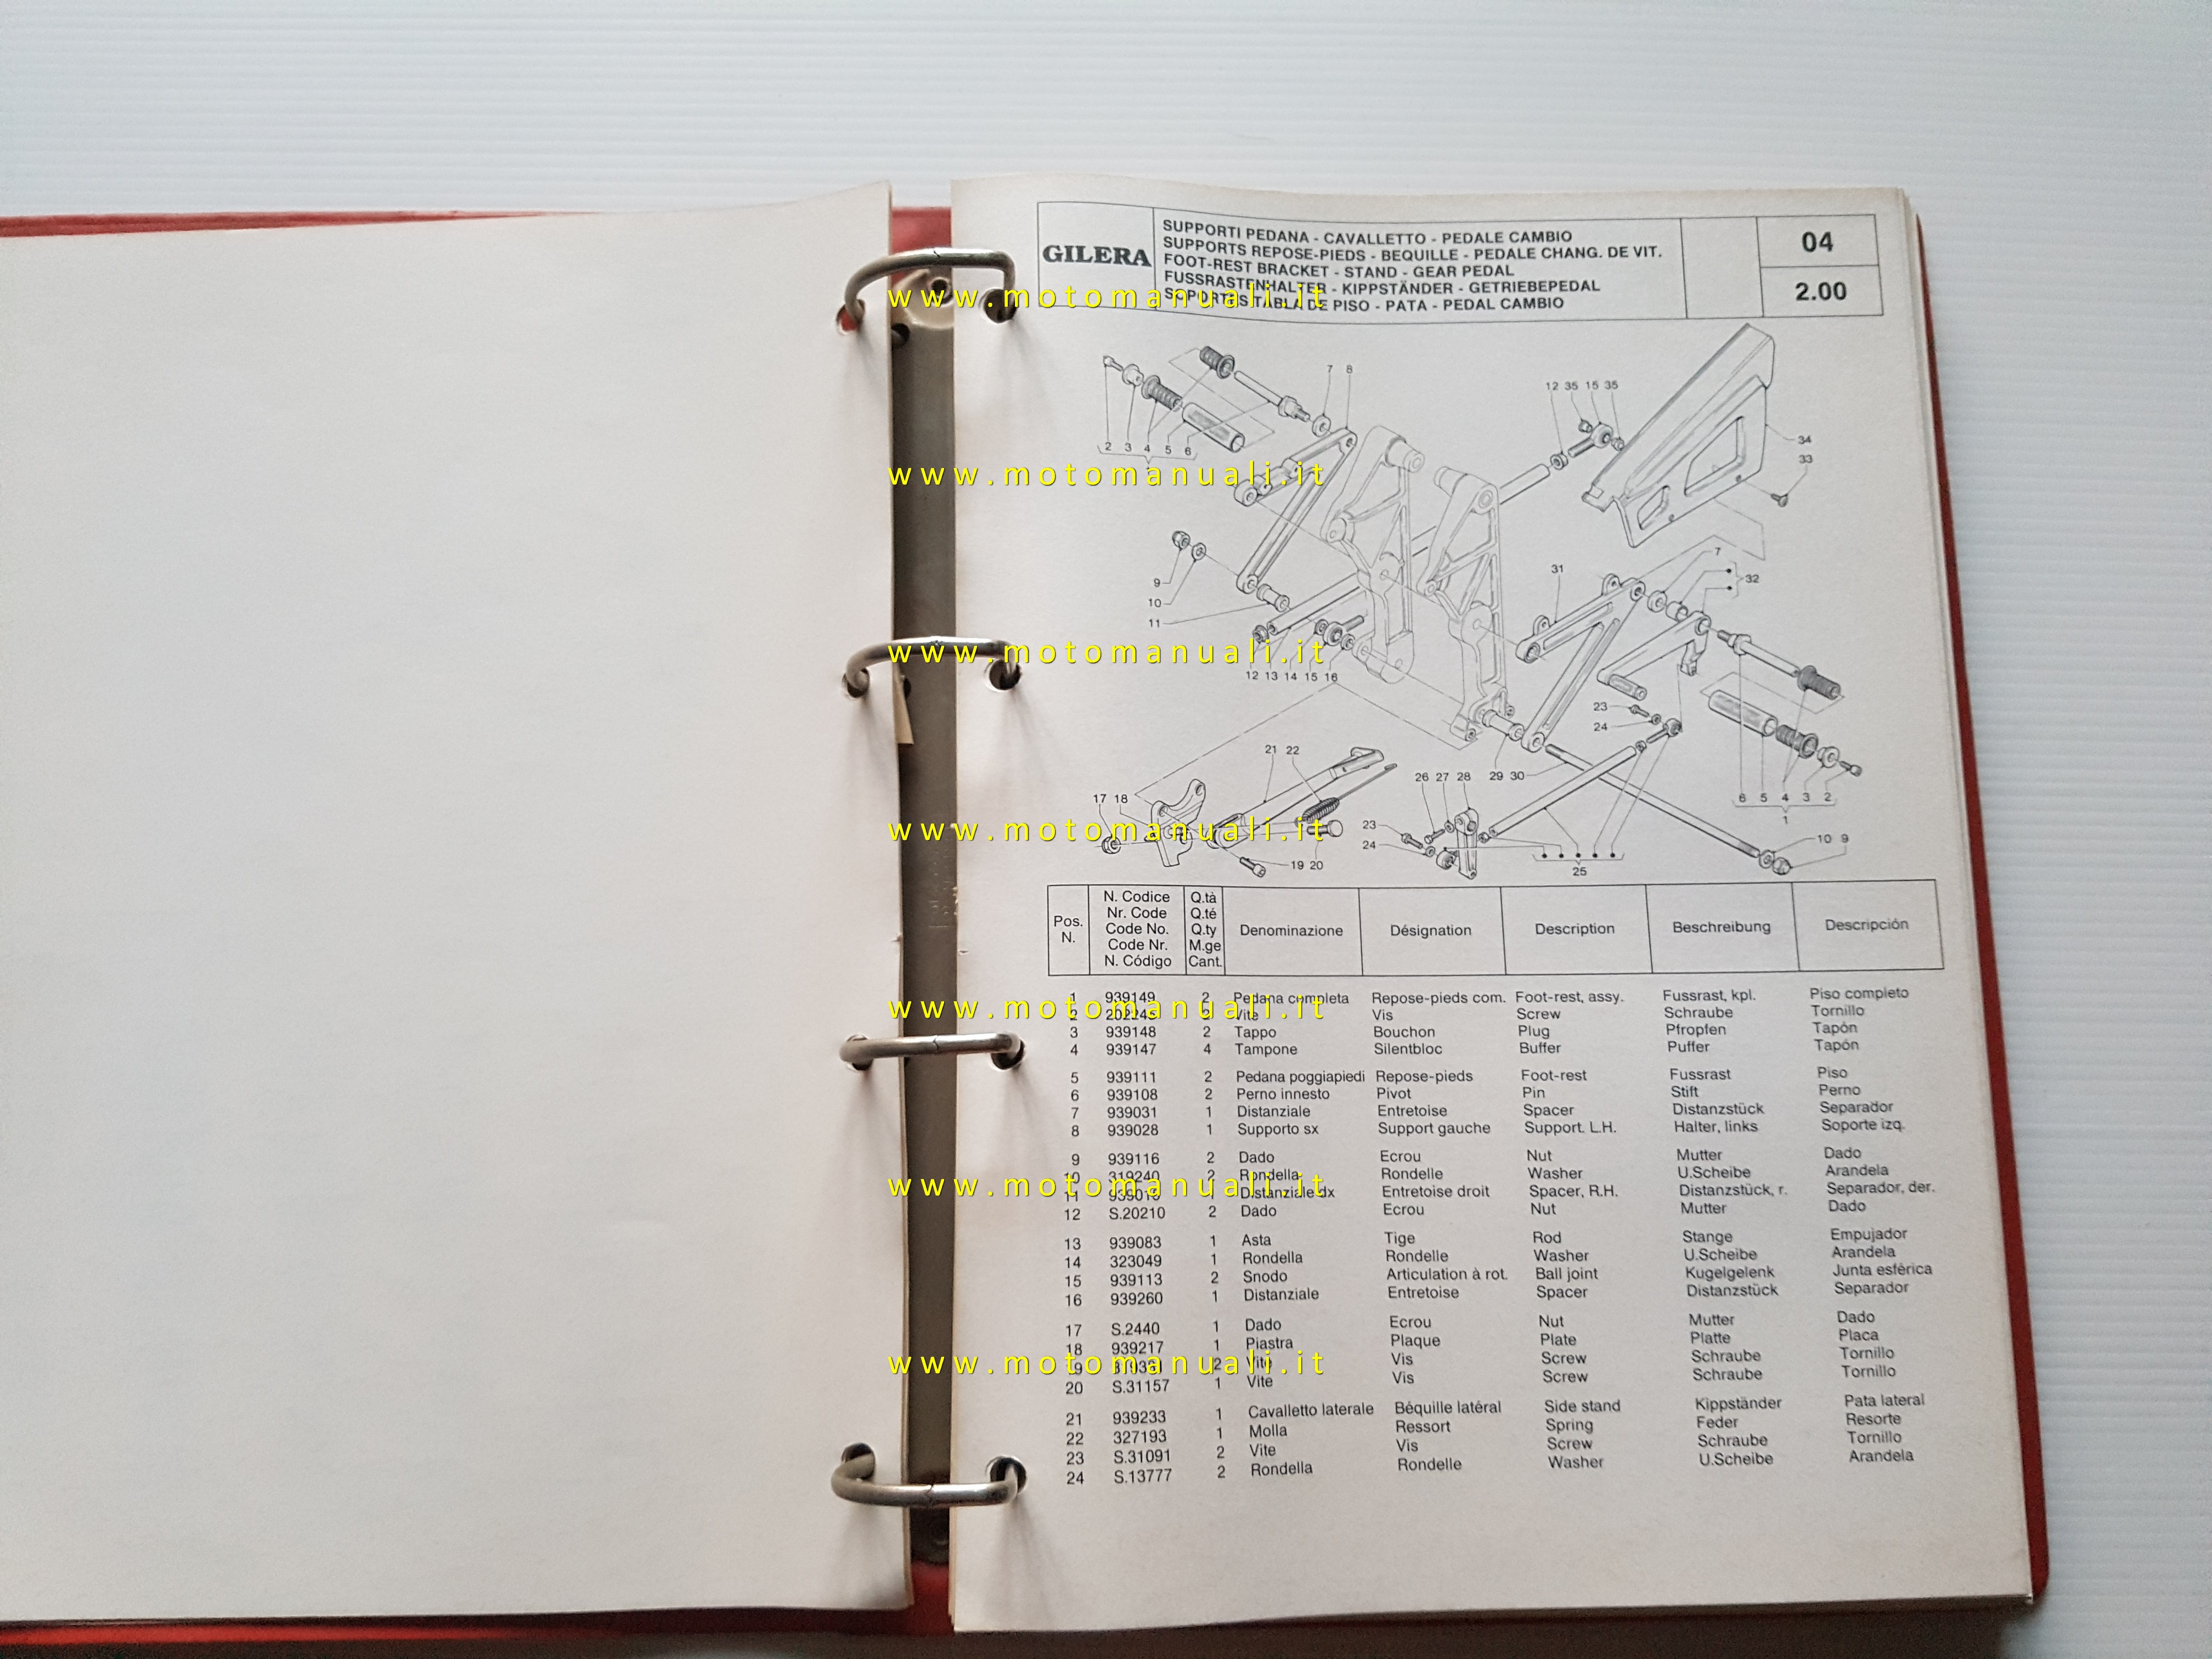 GILERA
SUPPORTI PEDANA - CAVALLETTO - PEDALE CAMBIO
SUPPORTS REPOSE-PIEDS - BEQUILLE - PEDALE CHANG. DE VIT.
FOOT-REST BRACKET - STAND - GEAR PEDAL
FUSSRASTENHALTER - KIPPSTÄNDER - GETRIEBEPEDAL
SOPORTES TABLA DE PISO - PATA - PEDAL CAMBIO
04
2.00
www.motomanuali.it
7 8
12 35 15 35
34
33
2 3 4 5 6
www.motomanuali.it
7
31
32
9
10
11
www.motomanuali.it
12 13 14 15 16
23
24
21 22
26 27 28 29 30
6 5 4 3 2
1
17 18
www.motomanuali.it
23
24
10 9
19 20
25
Pos. N.
N. Codice
Nr. Code
Code No.
Code Nr.
N. Código
Q.tà
Q.té
Q.ty
M.ge
Cant.
Denominazione
Désignation
Description
Beschreibung
Descripción
1 939149 2 Pedana completa Repose-pieds com. Foot-rest, assy. Fussrast, kpl. Piso completo
www.motomanuali.it
2 Vite Vis Screw Schraube Tornillo
3 939148 2 Tappo Bouchon Plug Pfropfen Tapón
4 939147 4 Tampone Silentbloc Buffer Puffer Tapón
5 939111 2 Pedana poggiapiedi Repose-pieds Foot-rest Fussrast Piso
6 939108 2 Perno innesto Pivot Pin Stift Perno
7 939031 1 Distanziale Entretoise Spacer Distanzstück Separador
8 939028 1 Supporto sx Support gauche Support. L.H. Halter, links Soporte izq.
9 939116 2 Dado Ecrou Nut Mutter Dado
10 319240 2 Rondella Rondelle Washer U.Scheibe Arandela
www.motomanuali.it
11 Distanziale dx Entretoise droit Spacer, R.H. Distanzstück, r. Separador, der.
12 S.20210 2 Dado Ecrou Nut Mutter Dado
13 939083 1 Asta Tige Rod Stange Empujador
14 323049 1 Rondella Rondelle Washer U.Scheibe Arandela
15 939113 2 Snodo Articulation à rot. Ball joint Kugelgelenk Junta esférica
16 939260 1 Distanziale Entretoise Spacer Distanzstück Separador
17 S.2440 1 Dado Ecrou Nut Mutter Dado
18 939217 1 Piastra Plaque Plate Platte Placa
www.motomanuali.it
19 2 Vite Vis Screw Schraube Tornillo
20 S.31157 1 Vite Vis Screw Schraube Tornillo
21 939233 1 Cavalletto laterale Béquille latéral Side stand Kippständer Pata lateral
22 327193 1 Molla Ressort Spring Feder Resorte
23 S.31091 2 Vite Vis Screw Schraube Tornillo
24 S.13777 2 Rondella Rondelle Washer U.Scheibe Arandela